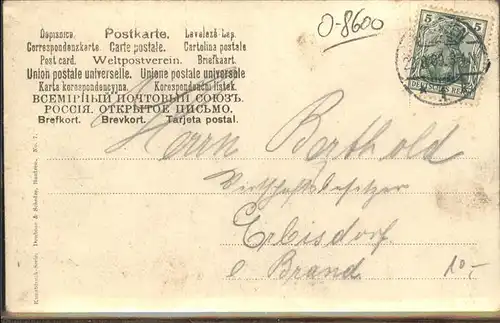 O-8600
Dopisnice. Postkarte. Levelező-Lap.
Correspondenzkarte. Carte postale. Cartolina postale
Post card. Weltpostverein. Briefkaart.
Union postale universelle. Unione postale universale
Karta korespondencyjna. Korespondenční lístek.
ВСЕМІРНЫЙ ПОЧТОВЫЙ СОЮЗЪ.
РОССІЯ. ОТКРЫТОЕ ПИСЬМО.
Brefkort. Brevkort. Tarjeta postal.
5 5
DEUTSCHES REICH
Herrn Berthold
Wirthschaftsbesitzer
Erbisdorf
b Brand
10.-